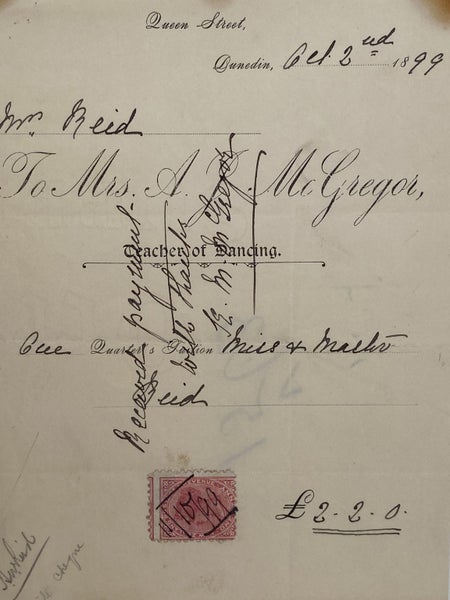 Queen Street,
Dunedin, Oct 2nd 1899
Mrs Reid
To Mrs. A. McGregor,
Teacher of Dancing.
One Quarter's Tuition Miss & Master
Reid
Received payment
with thanks
McGregor
11/10/99
£2.2.0.
cheque